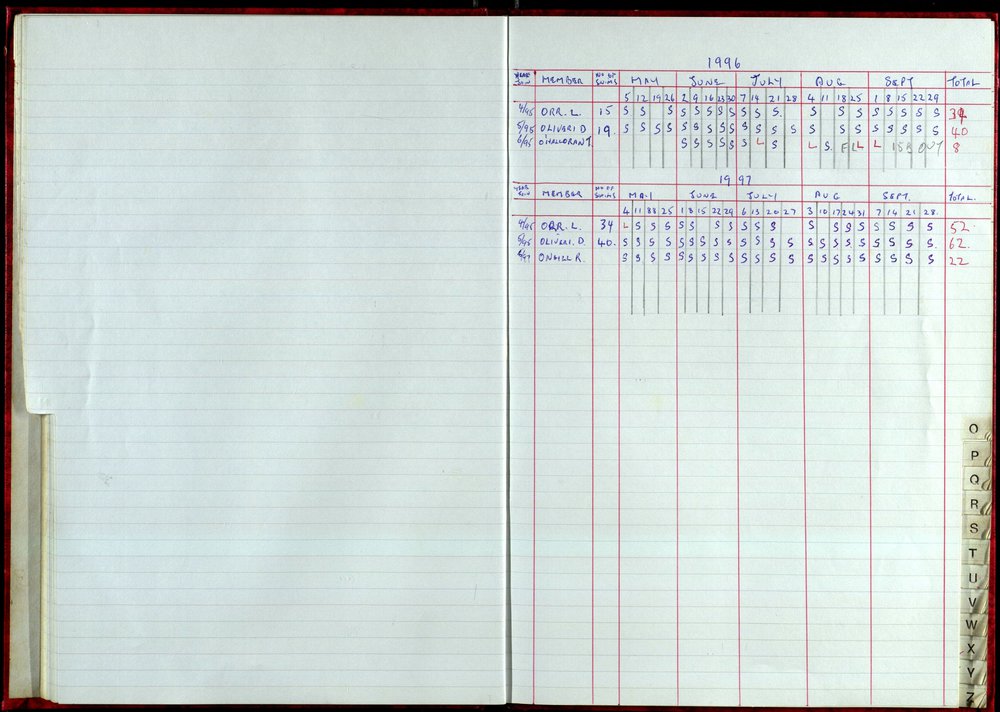 1996
YEAR JOIN MEMBER NO OF SWIMS MAY JUNE JULY AUG SEPT TOTAL
5 12 19 26 2 9 16 23 30 7 14 21 28 4 11 18 25 1 8 15 22 29
4/95 ORR. L. 15 S S S S S S S S S S S S S S S S S S S 34
5/95 OLIVERI D 19. S S S S S S S S S S S S S S S S S S S S S 40
6/95 O'HALLORAN T. S S S S S S L S L S. L L L OUT 8
1997
YEAR JOIN MEMBER NO OF SWIMS MAY JUNE JULY AUG SEPT. TOTAL.
4 11 18 25 1 8 15 22 29 6 13 20 27 3 10 17 24 31 7 14 21 28.
4/95 ORR. L. 34 L S S S S S S S S S S S S S S S S S S 52
5/95 OLIVERI. D. 40. S S S S S S S S S S S S S S S S S S S S S S 62.
4/97 ONEILL R. S S S S S S S S S S S S S S S S S S S S S S 22
O
P
Q
R
S
T
U
V
W
X
Y
Z